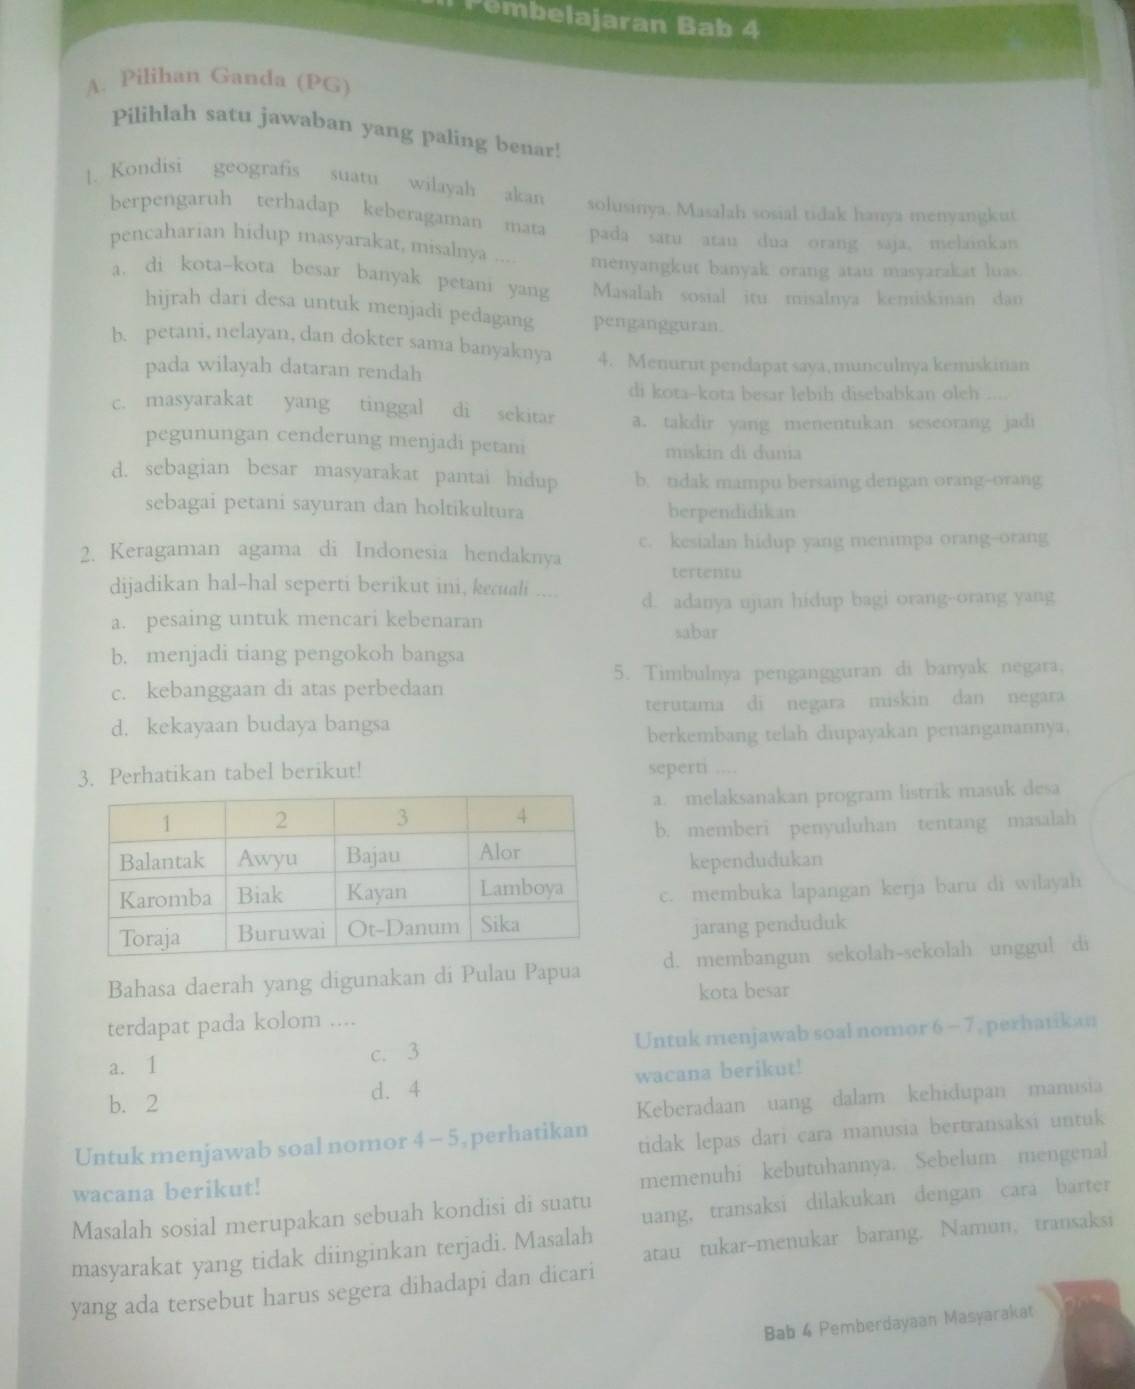 Pembelajaran Bab 4
A. Pilihan Ganda (PG)
Pilihlah satu jawaban yang paling benar!
1. Kondisi geografis suatu wilayah akan
berpengaruh terhadap keberagaman mata
pencaharian hidup masyarakat, misalnya ....
a. di kota-kota besar banyak petani yang
hijrah dari desa untuk menjadi pedagang
b. petani, nelayan, dan dokter sama banyaknya
pada wilayah dataran rendah
c. masyarakat yang tinggal di sekitar
pegunungan cenderung menjadi petani
d. sebagian besar masyarakat pantai hidup
sebagai petani sayuran dan holtikultura
2. Keragaman agama di Indonesia hendaknya
dijadikan hal-hal seperti berikut ini, kecuali ....
a. pesaing untuk mencari kebenaran
b. menjadi tiang pengokoh bangsa
c. kebanggaan di atas perbedaan
d. kekayaan budaya bangsa
3. Perhatikan tabel berikut!
1 2 3 4
Balantak Awyu Bajau Alor
Karomba Biak Kayan Lamboya
Toraja Buruwai Ot-Danum Sika
Bahasa daerah yang digunakan di Pulau Papua
terdapat pada kolom ....
a. 1 c. 3
b. 2 d. 4
Untuk menjawab soal nomor 4 – 5, perhatikan
wacana berikut!
Masalah sosial merupakan sebuah kondisi di suatu
masyarakat yang tidak diinginkan terjadi. Masalah
yang ada tersebut harus segera dihadapi dan dicari
solusinya. Masalah sosial tidak hanya menyangkut
pada satu atau dua orang saja, melainkan
menyangkut banyak orang atau masyarakat luas.
Masalah sosial itu misalnya kemiskinan dan
pengangguran.
4. Menurut pendapat saya, munculnya kemiskinan
di kota-kota besar lebih disebabkan oleh ....
a. takdir yang menentukan seseorang jadi
miskin di dunia
b. tidak mampu bersaing dengan orang-orang
berpendidikan
c. kesialan hidup yang menimpa orang-orang
tertentu
d. adanya ujian hidup bagi orang-orang yang
sabar
5. Timbulnya pengangguran di banyak negara,
terutama di negara miskin dan negara
berkembang telah diupayakan penanganannya,
seperti ....
a. melaksanakan program listrik masuk desa
b. memberi penyuluhan tentang masalah
kependudukan
c. membuka lapangan kerja baru di wilayah
jarang penduduk
d. membangun sekolah-sekolah unggul di
kota besar
Untuk menjawab soal nomor 6 – 7, perhatikan
wacana berikut!
Keberadaan uang dalam kehidupan manusia
tidak lepas dari cara manusia bertransaksi untuk
memenuhi kebutuhannya. Sebelum mengenal
uang, transaksi dilakukan dengan cara barter
atau tukar-menukar barang. Namun, transaksi
Bab 4 Pemberdayaan Masyarakat